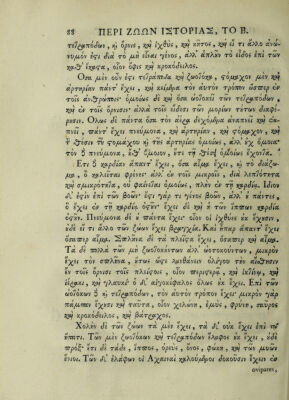 88 ΠΕΡΙ ΖΩΩΝ ΙΣΤΟΡΙΑΣ, ΤΟ Β.
τετραπόδων, ἢ ὄρνις, ἢ ἰχθὺς, καὶ κῆτος, καὶ εἴ τι ἄλλο ἀνώ-
νυμόν ἐστι διὰ τὸ μὴ εἶναι γένος, ἀλλ' ἁπλῶν τὸ εἶδος ἐπὶ τῶν
καθ' ἕκαστα, οἷον ὄφις καὶ κροκόδειλος.
Ὅσα μὲν οὖν ἐστι τετράποδα καὶ ζωοτόκα, στόμαχον μὲν καὶ
ἀρτηρίαν πάντ' ἔχει, καὶ κείμενα τὸν αὐτὸν τρόπον ὥσπερ ἐν
τοῖς ἀνθρώποις· ὁμοίως δὲ καὶ ὅσα ὠοτοκεῖ τῶν τετραπόδων,
καὶ ἐν τοῖς ὄρνισιν· ἀλλὰ τοῖς εἴδεσι τῶν μορίων τούτων διαφέ-
ρουσιν. Ὅλως δὲ πάντα ὅσα τὸν ἀέρα δεχόμενα ἀναπνεῖ καὶ ἐκ-
πνεῖ, πάντ' ἔχει πνεύμονα, καὶ ἀρτηρίαν, καὶ στόμαχον, καὶ
τὴν θέσιν τοῦ στομάχου καὶ τῆς ἀρτηρίας ὁμοίως, ἀλλ' οὐχ ὁμοία·
τὸν δὲ πνεύμονα, οὔθ' ὅμοιον, οὔτε τῇ θέσει ὁμοίως ἔχοντα.
Ἔτι δὲ καρδίαν ἅπαντ' ἔχει, ὅσα αἷμα ἔχει, καὶ τὸ διάζω-
μα, ὃ καλεῖται φρένες· ἀλλ' ἐν τοῖς μικροῖς, διὰ λεπτότητα
καὶ σμικρότητα, οὐ φαίνεται ὁμοίως, πλὴν ἐν τῇ καρδίᾳ. Ἴδιον
δ' ἐστὶν ἐπὶ τῶν βοῶν· ἔστι γάρ τι γένος βοῶν, ἀλλ' οὐ πάντες,
ὃ ἔχει ἐν τῇ καρδίᾳ ὀστοῦν· ἔχει δὲ καὶ ἡ τῶν ἵππων καρδία
ὀστοῦν. Πνεύμονα δὲ οὐ πάντα ἔχει· οἷον οἱ ἰχθύες οὐκ ἔχουσιν,
οὐδὲ εἴ τι ἄλλο τῶν ζώων ἔχει βράγχια. Καὶ ἧπαρ ἅπαντ' ἔχει
ὅσαπερ αἷμα. Σπλῆνα δὲ τὰ πλεῖστα ἔχει, ὅσαπερ καὶ αἷμα.
Τὰ δὲ πολλὰ τῶν μὴ ζωοτοκούντων ἀλλ' ὠοτοκούντων, μικρὸν
ἔχει τὸν σπλῆνα, οὕτως ὥστε λανθάνειν ὀλίγου τὴν αἴσθησιν
ἐν τοῖς ὄρνισι τοῖς πλείστοις, οἷον περιστερᾷ, καὶ ἰκτίνῳ, καὶ
ἱέρακι, καὶ γλαυκί· ὁ δ' αἰγοκέφαλος ὅλως οὐκ ἔχει. Ἐπὶ τῶν
ὠοτόκων δὲ καὶ τετραπόδων, τὸν αὐτὸν τρόπον ἔχει· μικρὸν γὰρ
πάμπαν ἔχουσι καὶ ταῦτα, οἷον χελώνη, ἐμὺς, φρύνη, σαῦρος
καὶ κροκόδειλος, καὶ βάτραχος.
Χολὴν δὲ τῶν ζώων τὰ μὲν ἔχει, τὰ δ' οὐκ ἔχει ἐπὶ τῷ
ἥπατι. Τῶν μὲν ζωοτόκων καὶ τετραπόδων ἔλαφος οὐκ ἔχει, οὐδὲ
πρόξ· ἔτι δὲ τάδε, ἵππος, ὀρεὺς, ὄνος, φώκη, καὶ τῶν μυῶν
ἔνιοι. Τῶν δ' ἐλάφων αἱ Ἀχαιῖναι καλούμεναι δοκοῦσιν ἔχειν ἐν
ovipares,